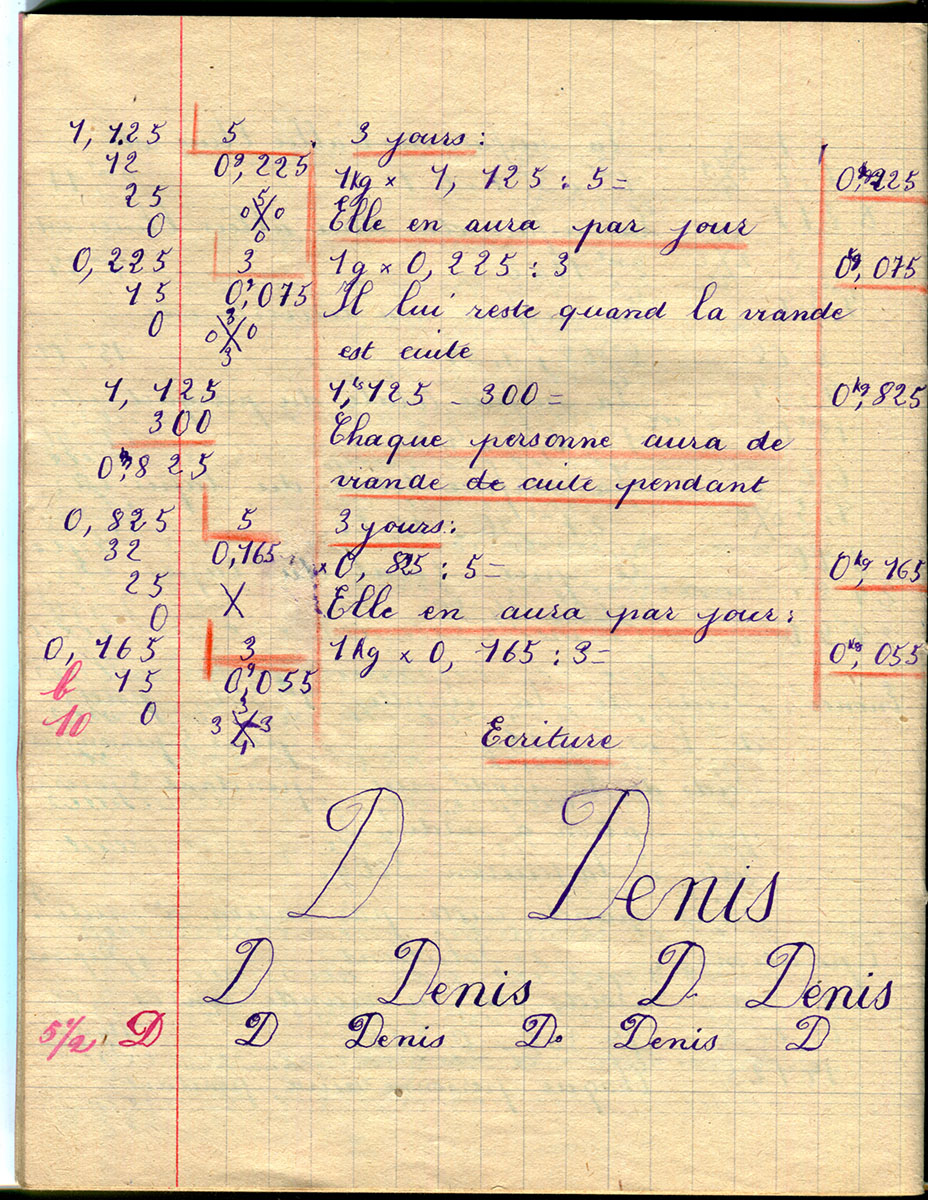 1,125 5 3 jours :
12 0,225 1kg x 1,125 : 5 = 0kg,225
25 5
0 0 0 Elle en aura par jour
0
0,225 3 1g x 0,225 : 3 0kg,075
15 0,075 Il lui reste quand la viande
0 3
0 0
3 est cuite
1,125 1,k125 - 300 = 0kg,825
300 Chaque personne aura de
0,825 viande de cuite pendant
0,825 5 3 jours :
32 0,165 x 0,825 : 5 = 0kg,165
25
0 Elle en aura par jour :
0,165 3 1kg x 0,165 : 3 = 0kg,055
b 15 0,055
10 0 3
3 3
Ecriture
D Denis
D Denis D. Denis
5 1/2 D D Denis D. Denis D